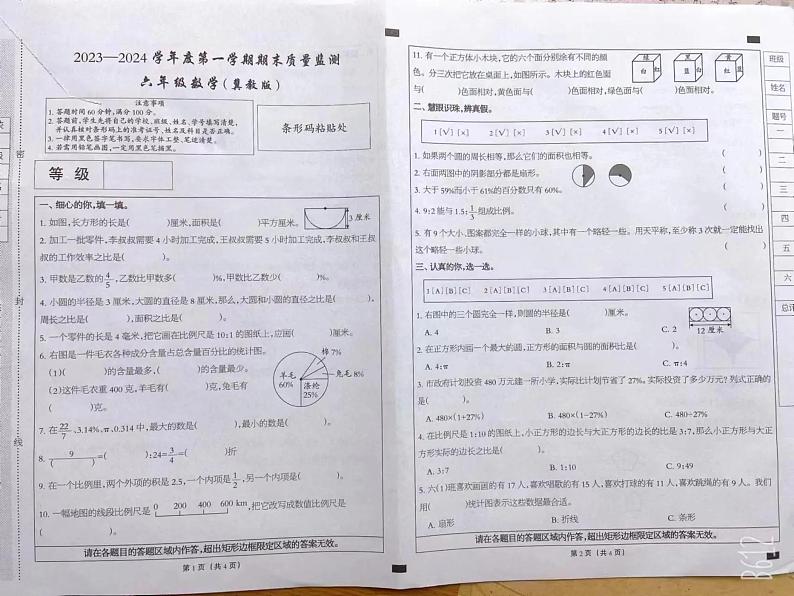 2023—2024 学年度第一学期期末质量监测
六年级数学(冀教版)
注意事项
1. 答题时间60分钟,满分100分。
2. 答题前,学生先将自己的学校、班级、姓名、学号填写清楚,
并认真核对条形码上的准考证号、姓名及科目是否正确。
3. 一律用黑色签字笔书写,要求字体工整、笔迹清楚。
4. 若需用铅笔画图,一定用黑色笔描黑。
条形码粘贴处
等 级
一、细心的你,填一填。
1. 如图,长方形的长是( )厘米,面积是( )平方厘米。
3厘米
2. 加工一批零件,李叔叔需要4小时加工完成,王叔叔需要5小时加工完成,李叔叔和王叔
叔的工作效率之比是( )。
3. 甲数是乙数的4/5,乙数比甲数多( )%,甲数比乙数少( )%。
4. 小圆的半径是3厘米,大圆的直径是8厘米,那么,大圆和小圆的直径之比是( ),
周长之比是( ),面积之比是( )。
5. 一个零件的长是4毫米,把它画在比例尺是10:1的图纸上,应画( )厘米。
6. 右图是一件毛衣各种成分含量占总含量百分比的统计图。
(1)( )的含量最多,( )的含量最少。
(2)这件毛衣重400克,羊毛有( )克,兔毛有
( )克。
棉7%
兔毛8%
羊毛
60%
涤纶
25%
7. 在22/7、3.14%、π、0.314中,最大的数是( ),最小的数是( )。
8. 9/( )=( ):24=3/4=( )折
9. 在一个比例里,两个外项的积是2.5,一个内项是1/2,另一个内项是( )。
10. 一幅地图的线段比例尺是 0 200 400 600 km,把它改写成数值比例尺是
( )
请在各题目的答题区域内作答,超出矩形边框限定区域的答案无效。
第1页(共4页)
密
封
线
11. 有一个正方体小木块,它的六个面分别涂有不同的颜
色。分三次把它放在桌上,如图所示。木块上的红色面
与( )色面相对,黄色面与( )色面相对,白色面与( )色面相对。
二、慧眼识珠,辨真假。
1[√][×] 2[√][×] 3[√][×] 4[√][×] 5[√][×]
1. 如果两个圆的周长相等,那么它们的面积也相等。 ( )
2. 右面两图中的阴影部分都是扇形。 ( )
3. 大于59%而小于61%的百分数只有60%。 ( )
4. 9:2能与1.5:1/3组成比例。 ( )
5. 有9个大小、图案都完全一样的小球,其中有一个略轻一些。用天平称,至少称3次就一定能找出
这个略轻一些小球。 ( )
三、认真的你,选一选。
1[A][B][C] 2[A][B][C] 3[A][B][C] 4[A][B][C] 5[A][B][C]
1. 右图中的三个圆完全一样,则圆的半径是( )厘米。
12厘米
A. 4 B. 3 C. 2
2. 在正方形内画一个最大的圆,正方形的面积与圆的面积比是( )。
A. 4:π B. 2:π C. π:4
3. 市政府计划投资480万元建一所小学,实际比计划节省了27%。实际投资了多少万元?列式正确的
是( )。
A. 480×(1+27%) B. 480×(1-27%) C. 480÷27%
4. 在比例尺是1:10的图纸上,小正方形的边长与大正方形的边长的比是3:7,那么小正方形与大正
方形实际的边长之比是( )。
A. 3:7 B. 1:10 C. 9:49
5. 六(1)班喜欢画画的有17人,喜欢唱歌的有15人,喜欢打球的有11人,喜欢跳绳的有9人。我们
用( )统计图表示这些数据最合适。
A. 扇形 B. 折线 C. 条形
请在各题目的答题区域内作答,超出矩形边框限定区域的答案无效。
第2页(共4页)
班级
姓名
题号
一
二
三
四
五
六
总评
B612